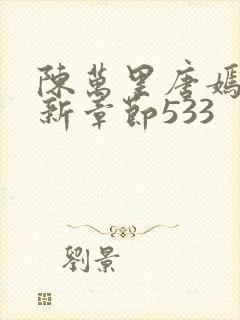 陳萬里唐嫣
新章節533
劉景